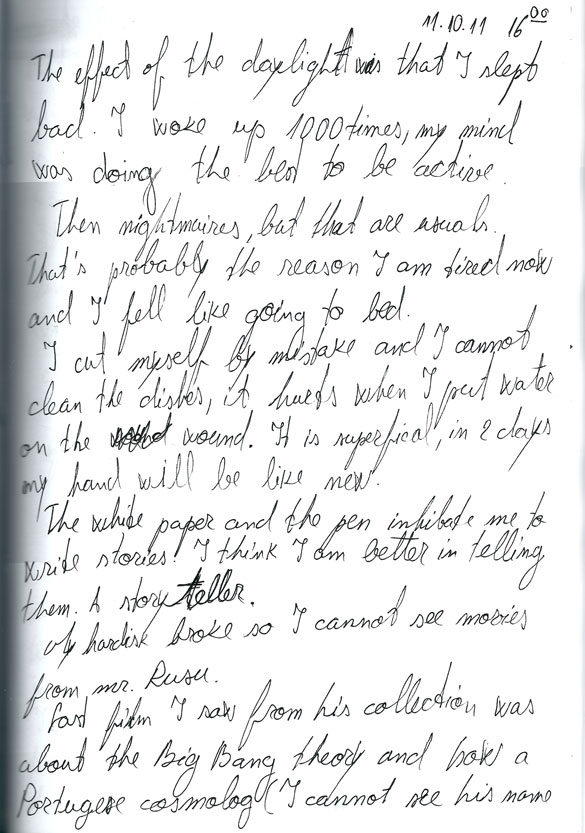 11.10.11 16⁰⁰
The effect of the daylight was that I slept
bad. I woke up 1000 times, my mind
was doing the best to be active.
Then nightmaires, but that are usuals.
That's probably the reason I am tired now
and I fell like going to bed.
I cut myself by mistake and I cannot
clean the dishes, it hurds when I put water
on the wound. It is superfical, in 2 days
my hand will be like new.
The white paper and the pen inhibate me to
write stories! I think I am better in telling
them. A story teller.
My hardisk broke so I cannot see movies
from mr. Rusu.
Last film I saw from his collection was
about the Big Bang theory and how a
Portugese cosmolog (I cannot see his name